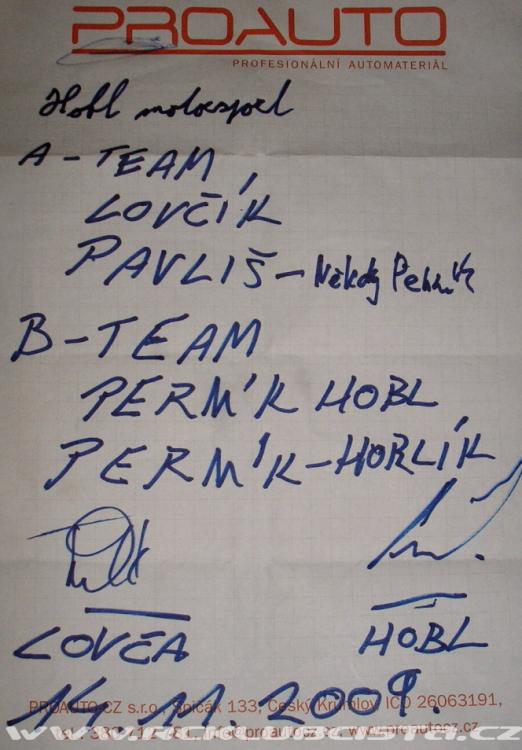 PROAUTO
PROFESIONÁLNÍ AUTOMATERIÁL
Hobl motorsport
A-TEAM
LOVČÍK
PAVLIŠ - Někdy Perník
B-TEAM
PERNÍK HOBL
PERNÍK-HORLÍK
LOVČA HOBL
PROAUTO.CZ s.r.o., Špičák 133, Český Krumlov IČO 26063191,
14. 11. 2009.
www.proautocz.cz